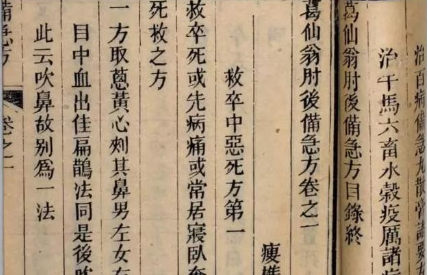 治百病備急丸散膏諸要方
治牛馬六畜水穀疫厲諸病
葛仙翁肘後備急方目錄終
葛仙翁肘後備急方卷之一
瘦樵
救卒中惡死方第一
救卒死或先病痛或常居寢臥奄
死救之方
一方取葱黃心刺其鼻男左女右
目中血出佳扁鵲法同是後
此云吹鼻故別爲一法
備急方 卷之一